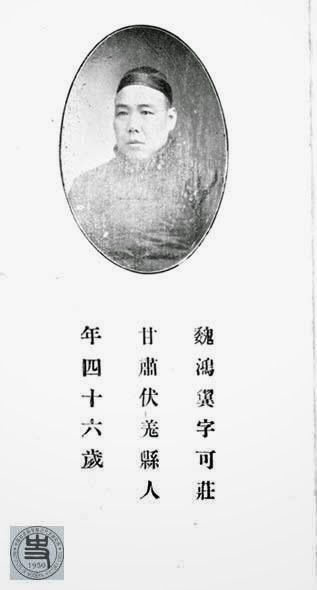 魏鴻翼字可莊
甘肅伏羌縣人
年四十六歲
史
1950